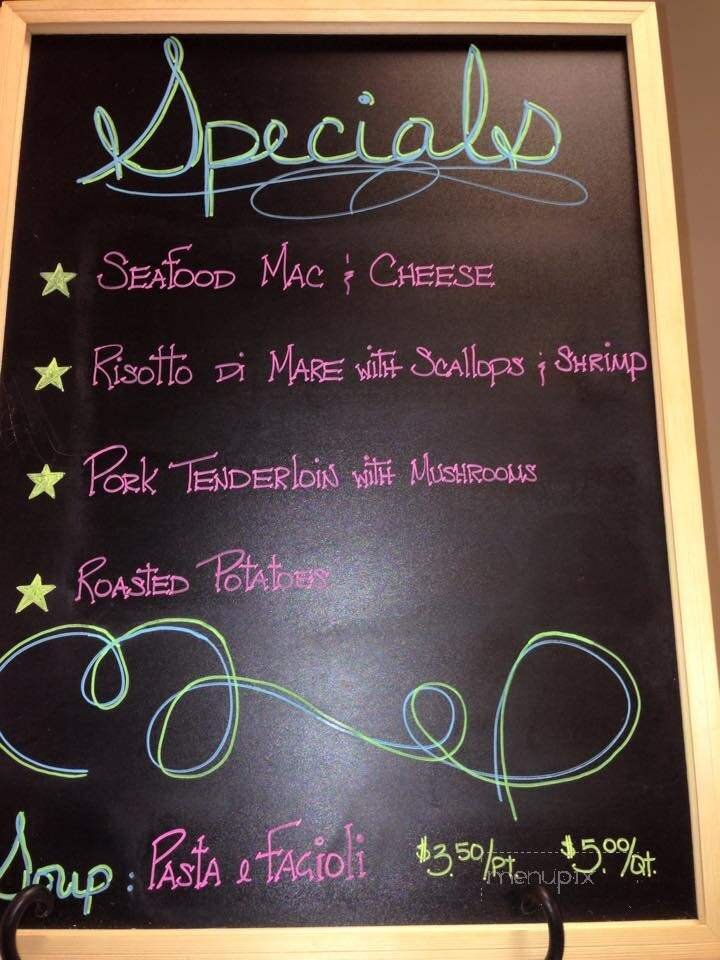 Specials
Seafood Mac & Cheese
Risotto di Mare with Scallops & Shrimp
Pork Tenderloin with Mushrooms
Roasted Potatoes
Soup: Pasta e Fagioli $3.50/pt. $5.00/qt.
menupix